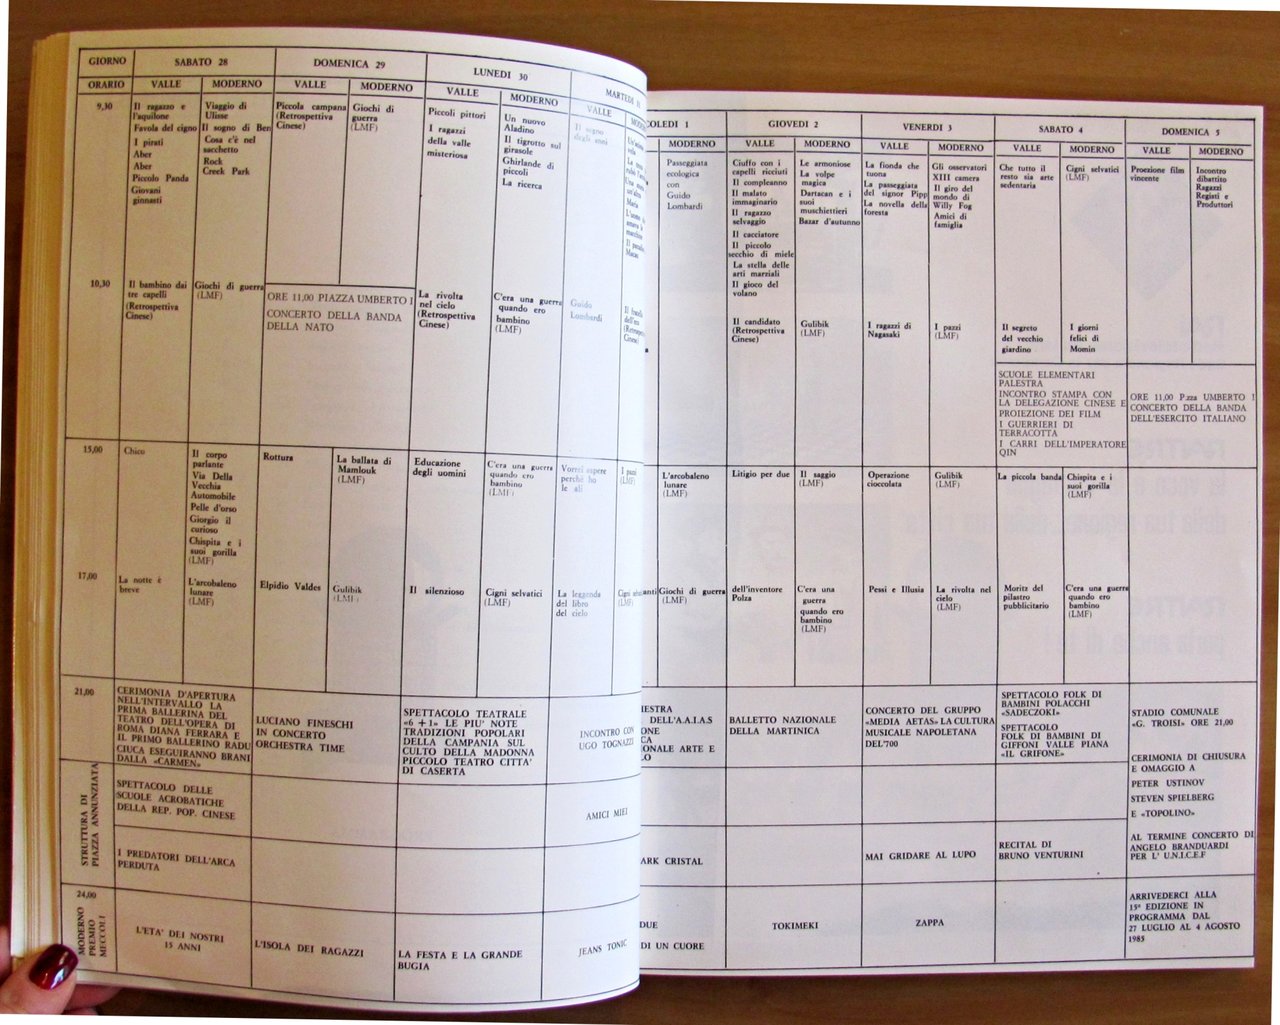 GIORNO
SABATO 28
DOMENICA 29
LUNEDI 30
MARTEDI 31
ORARIO
VALLE
MODERNO
VALLE
MODERNO
VALLE
MODERNO
VALLE
9,30
Il ragazzo e
l'aquilone
Favola del cigno
I pirati
Aber
Aber
Piccolo Panda
Giovani
ginnasti
Viaggio di
Ulisse
Il sogno di Ben
Cosa c'è nel
sacchetto
Rock
Creek Park
Piccola campana
(Retrospettiva
Cinese)
Giochi di
guerra
(LMF)
Piccoli pittori
I ragazzi
della valle
misteriosa
Un nuovo
Aladino
Il tigrotto sul
girasole
Ghirlande di
piccoli
La ricerca
Il sogno
degli anni
10,30
Il bambino dai
tre capelli
(Retrospettiva
Cinese)
Giochi di guerra
(LMF)
ORE 11,00 PIAZZA UMBERTO I
CONCERTO DELLA BANDA
DELLA NATO
La rivolta
nel cielo
(Retrospettiva
Cinese)
C'era una guerra
quando ero
bambino
(LMF)
Guido
Lombardi
15,00
Chico
Il corpo
parlante
Via Della
Vecchia
Automobile
Pelle d'orso
Giorgio il
curioso
Chispita e i
suoi gorilla
(LMF)
Rottura
La ballata di
Mamlouk
(LMF)
Educazione
degli uomini
C'era una guerra
quando ero
bambino
(LMF)
Vorrei sapere
perchè ho
le ali
I pazi
(LMF)
17,00
La notte è
breve
L'arcobaleno
lunare
(LMF)
Elpidio Valdes
Gulibik
(LMF)
Il silenzioso
Cigni selvatici
(LMF)
La leggenda
del libro
del cielo
Cigni
(LMF)
21,00
CERIMONIA D'APERTURA
NELL'INTERVALLO LA
PRIMA BALLERINA DEL
TEATRO DELL'OPERA DI
ROMA DIANA FERRARA E
IL PRIMO BALLERINO RADU
CIUCA ESEGUIRANNO BRANI
DALLA «CARMEN»
LUCIANO FINESCHI
IN CONCERTO
ORCHESTRA TIME
SPETTACOLO TEATRALE
«6 + 1» LE PIU' NOTE
TRADIZIONI POPOLARI
DELLA CAMPANIA SUL
CULTO DELLA MADONNA
PICCOLO TEATRO CITTA'
DI CASERTA
INCONTRO CON
UGO TOGNAZZI
STRUTTURA DI
PIAZZA ANNUNZIATA
SPETTACOLO DELLE
SCUOLE ACROBATICHE
DELLA REP. POP. CINESE
AMICI MIEI
I PREDATORI DELL'ARCA
PERDUTA
24,00
MODERNO
PREMIO
MECCOLI
L'ETA' DEI NOSTRI
15 ANNI
L'ISOLA DEI RAGAZZI
LA FESTA E LA GRANDE
BUGIA
JEANS TONIC
COLEDI 1
GIOVEDI 2
VENERDI 3
SABATO 4
DOMENICA 5
MODERNO
VALLE
MODERNO
VALLE
MODERNO
VALLE
MODERNO
VALLE
MODERNO
Passeggiata
ecologica
con
Guido
Lombardi
Ciuffo con i
capelli ricciuti
Il compleanno
Il malato
immaginario
Il ragazzo
selvaggio
Il cacciatore
Il piccolo
secchio di miele
La stella delle
arti marziali
Il gioco del
volano
Le armoniose
La volpe
magica
Dartacan e i
suoi
muschiettieri
Bazar d'autunno
La fionda che
tuona
La passeggiata
del signor Pipp
La novella della
foresta
Gli osservatori
XIII camera
Il giro del
mondo di
Willy Fog
Amici di
famiglia
Che tutto il
resto sia arte
sedentaria
Cigni selvatici
(LMF)
Proezione film
vincente
Incontro
dibattito
Ragazzi
Registi e
Produttori
Il candidato
(Retrospettiva
Cinese)
Gulibik
(LMF)
I ragazzi di
Nagasaki
I pazzi
(LMF)
Il segreto
del vecchio
giardino
I giorni
felici di
Momio
SCUOLE ELEMENTARI
PALESTRA
INCONTRO STAMPA CON
LA DELEGAZIONE CINESE E
PROIEZIONE DEI FILM
I GUERRIERI DI
TERRACOTTA
I CARRI DELL'IMPERATORE
QIN
ORE 11,00 P.zza UMBERTO I
CONCERTO DELLA BANDA
DELL'ESERCITO ITALIANO
L'arcobaleno
lunare
(LMF)
Litigio per due
Il saggio
(LMF)
Operazione
cioccolata
Gulibik
(LMF)
La piccola banda
Chispita e i
suoi gorilla
(LMF)
Giochi di guerra
(LMF)
dell'inventore
Polza
C'era una
guerra
quando ero
bambino
(LMF)
Pessi e Illusia
La rivolta nel
cielo
(LMF)
Moritz del
pilastro
pubblicitario
C'era una guerra
quando ero
bambino
(LMF)
IESTRA
DELL'A.A.I.A.S
ONE
CA
ONALE ARTE E
LO
BALLETTO NAZIONALE
DELLA MARTINICA
CONCERTO DEL GRUPPO
«MEDIA AETAS» LA CULTURA
MUSICALE NAPOLETANA
DEL'700
SPETTACOLO FOLK DI
BAMBINI POLACCHI
«SADECZOKI»
SPETTACOLO
FOLK DI BAMBINI DI
GIFFONI VALLE PIANA
«IL GRIFONE»
STADIO COMUNALE
«G. TROISI» ORE 21,00
CERIMONIA DI CHIUSURA
E OMAGGIO A
PETER USTINOV
STEVEN SPIELBERG
E «TOPOLINO»
AL TERMINE CONCERTO DI
ANGELO BRANDUARDI
PER L' U.N.I.C.E.F
ARK CRISTAL
MAI GRIDARE AL LUPO
RECITAL DI
BRUNO VENTURINI
DUE
DI UN CUORE
TOKIMEKI
ZAPPA
ARRIVEDERCI ALLA
15ª EDIZIONE IN
PROGRAMMA DAL
27 LUGLIO AL 4 AGOSTO
1985